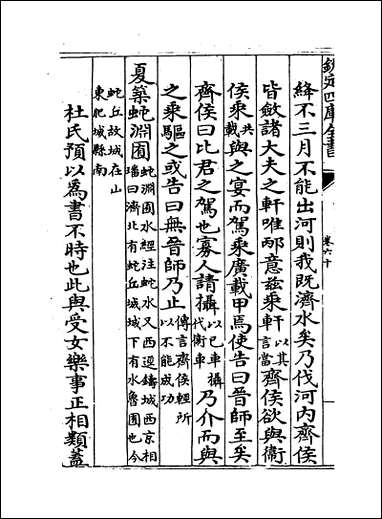 欽定四庫全書
卷六十
絳不三月不能出河則我既濟水矣乃伐河內齊侯
皆斂諸大夫之軒唯邴意茲乘軒以其言當齊侯欲與衛
侯乘共載與之宴而駕乘廣載甲焉使告曰晉師至矣
齊侯曰比君之駕也寡人請攝以己車攝代衛車乃介而與
之乘驅之或告曰無晉師乃止傳言齊侯輕所以不能成功
夏築蛇淵囿蛇淵囿水經注蛇水又西逕鑄城西京相璠曰濟北有蛇丘城城下有水魯囿也今
蛇丘故城在山東肥城縣南
杜氏預以為書不時也此與受女樂事正相類蓋